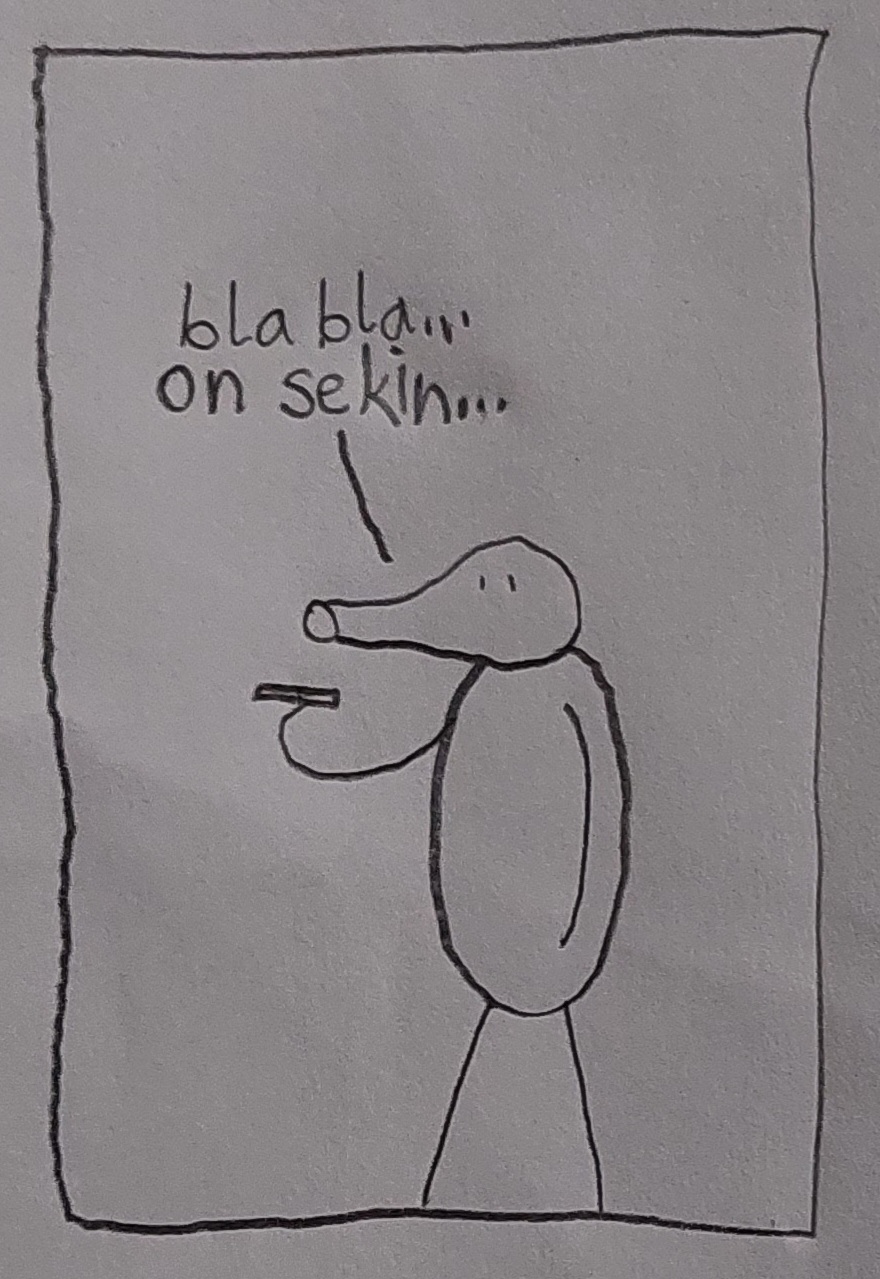 bla bla...
on sekin...